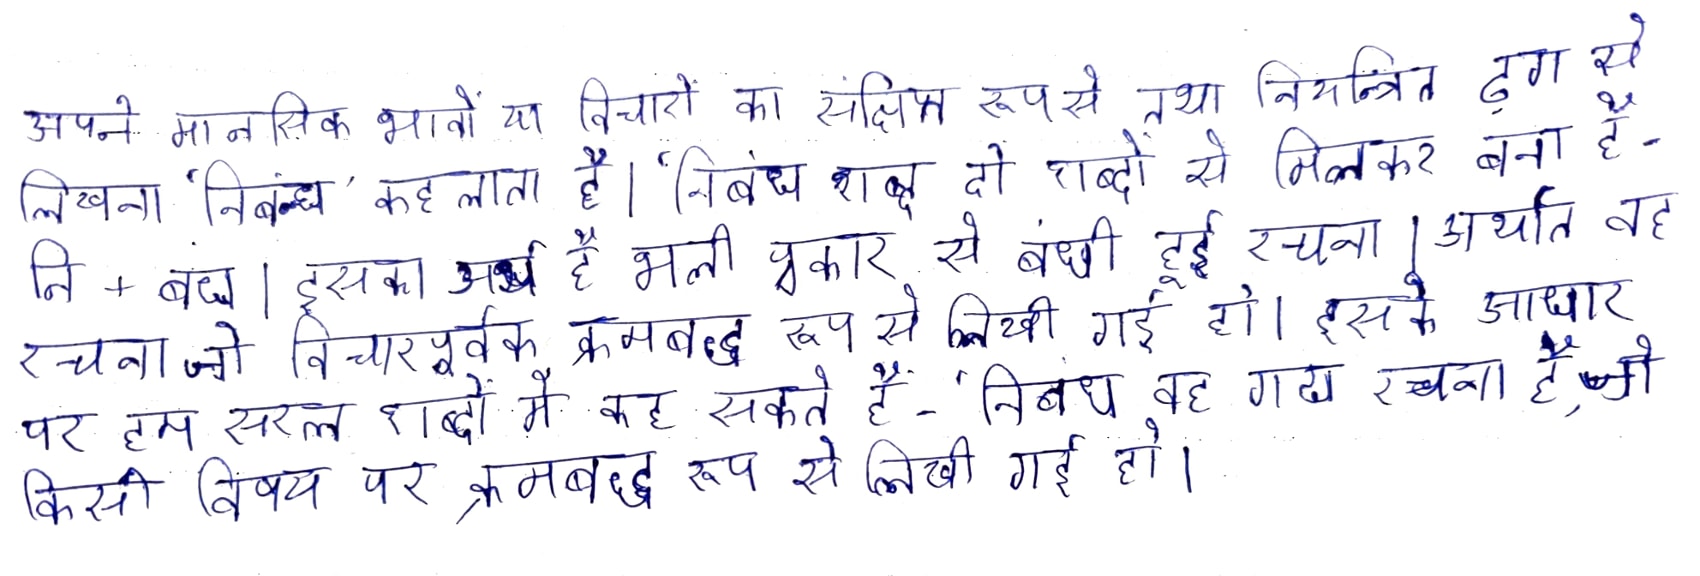 अपने मानसिक भावों या विचारों का संक्षिप्त रूप से तथा नियन्त्रित ढ़ग से
लिखना 'निबंध' कहलाता है। 'निबंध शब्द दो शब्दों से मिलकर बना है -
नि + बंध। इसका अर्थ है भली प्रकार से बंधी हुई रचना। अर्थात वह
रचना जो विचारपूर्वक क्रमबद्ध रूप से लिखी गई हो। इसके आधार
पर हम सरल शब्दों में कह सकते हैं - 'निबंध वह गद्य रचना है, जो
किसी विषय पर क्रमबद्ध रूप से लिखी गई हो।